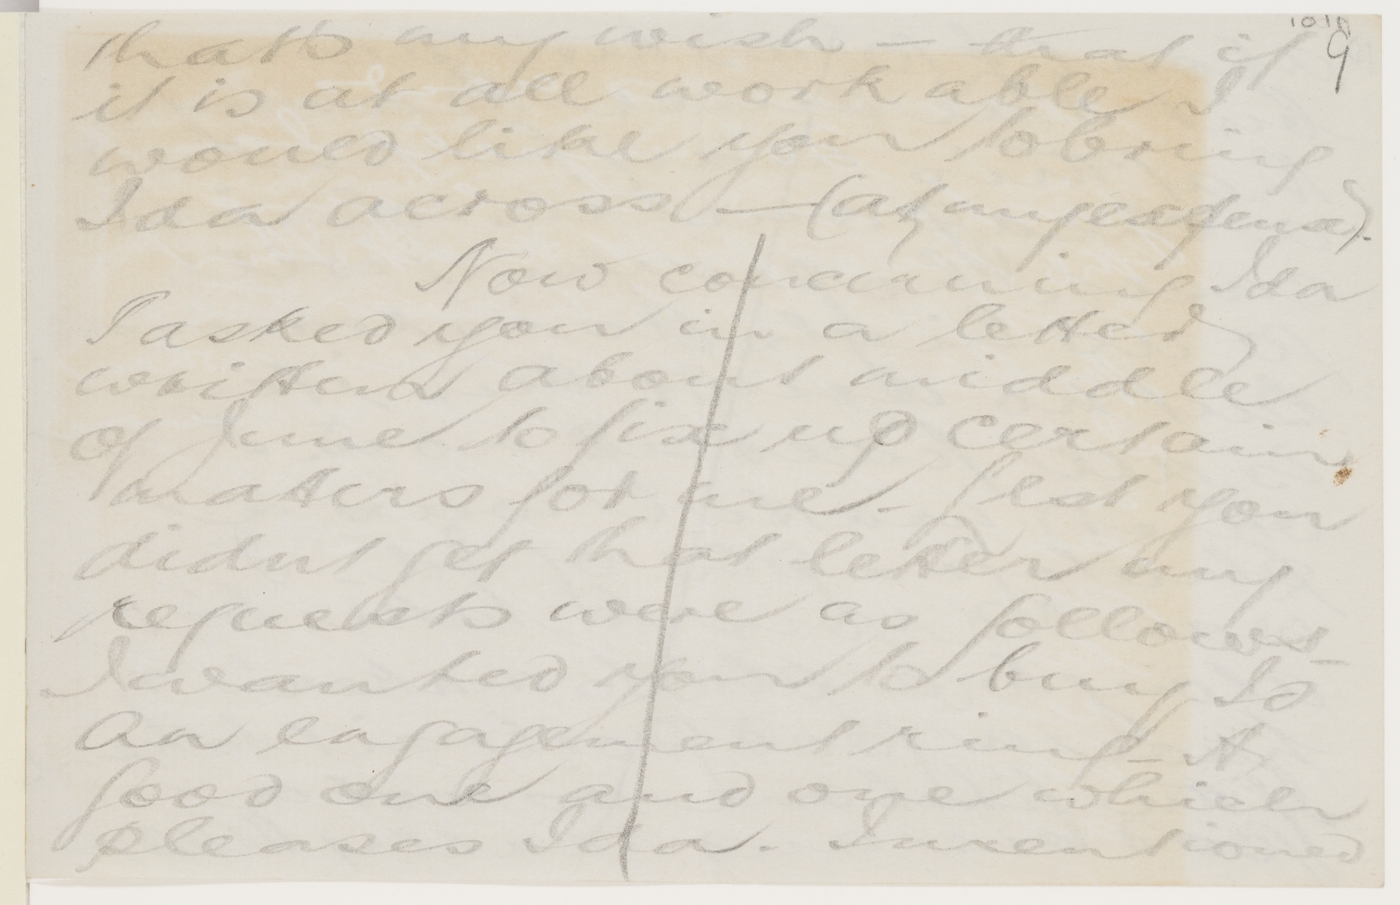 9
thats my wish - that if
it is at all workable I
would like you to bring
Ida across - (at my expense).
Now concerning Ida
I asked you in a letter
written about middle
of June to fix up certain
matters for me - lest you
didnt get that letter my
requests were as follows -
I wanted you to buy Id
an engagement ring - A
good one and one which
pleases Ida. I mentioned